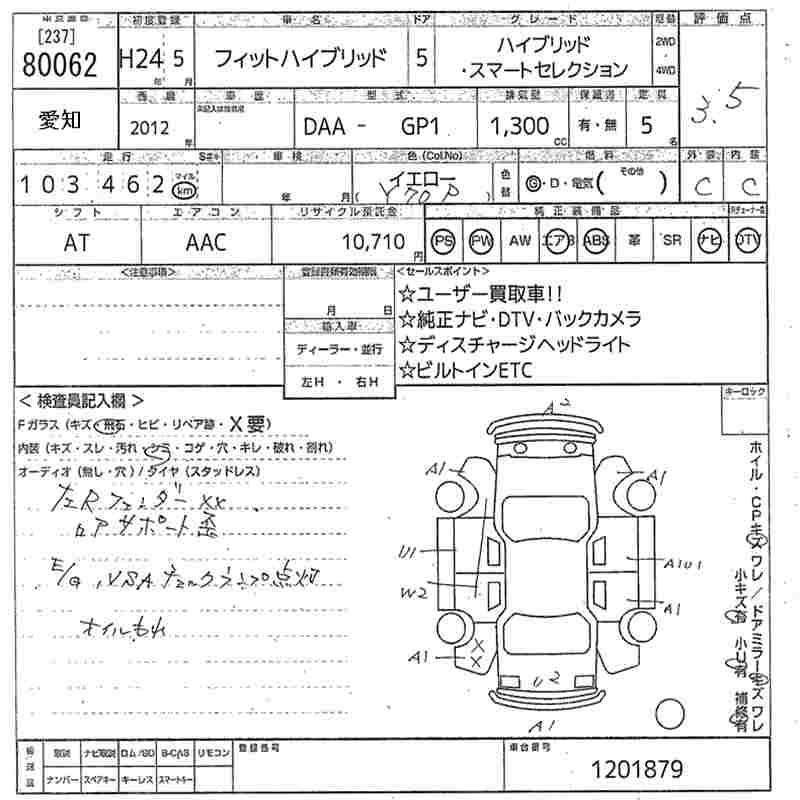 [237]
80062
初度登録
H24 5
年 月
車名
フィットハイブリッド
ドア
5
グレード
ハイブリッド
・スマートセレクション
2WD
4WD
評価点
3.5
愛知
2012
年
型式
DAA - GP1
排気量
1,300
CC
有・無
定員
5
名
走行
103,462
マイル
km
車検
年 月
色(Col.No)
イエロー
Y70P
色替
燃料
G・D・電気( その他 )
外装
C
内装
C
シフト
AT
エアコン
AAC
リサイクル預託金
10,710
円
純正装備品
PS PW AW エアB ABS 革 SR ナビ DTV
<注意事項>
登録書類有効期限
月 日
輸入車
ディーラー・並行
左H ・ 右H
<セールスポイント>
☆ユーザー買取車!!
☆純正ナビ・DTV・バックカメラ
☆ディスチャージヘッドライト
☆ビルトインETC
<検査員記入欄>
Fガラス(キズ・飛石・ヒビ・リペア跡・X要)
内装(キズ・スレ・汚れ・シミ・コゲ・穴・キレ・破れ・割れ)
オーディオ(無し・穴)/タイヤ(スタッドレス)
左Rフェンダー XX
ロアサポート歪
E/G、VSAチェックランプ点灯
オイルもれ
キーロック
A2
A1
A1
U1
A1U1
W2
A1
A1
X
X
U2
A1
ホイル・CPキズワレ/ドアミラーキズワレ
小キズ有 小U有 補修有
取説 ナビ取説 ロム/SD B-CAS リモコン
ナンバー スペアキー キーレス スマートキー
登録番号
車台番号
1201879